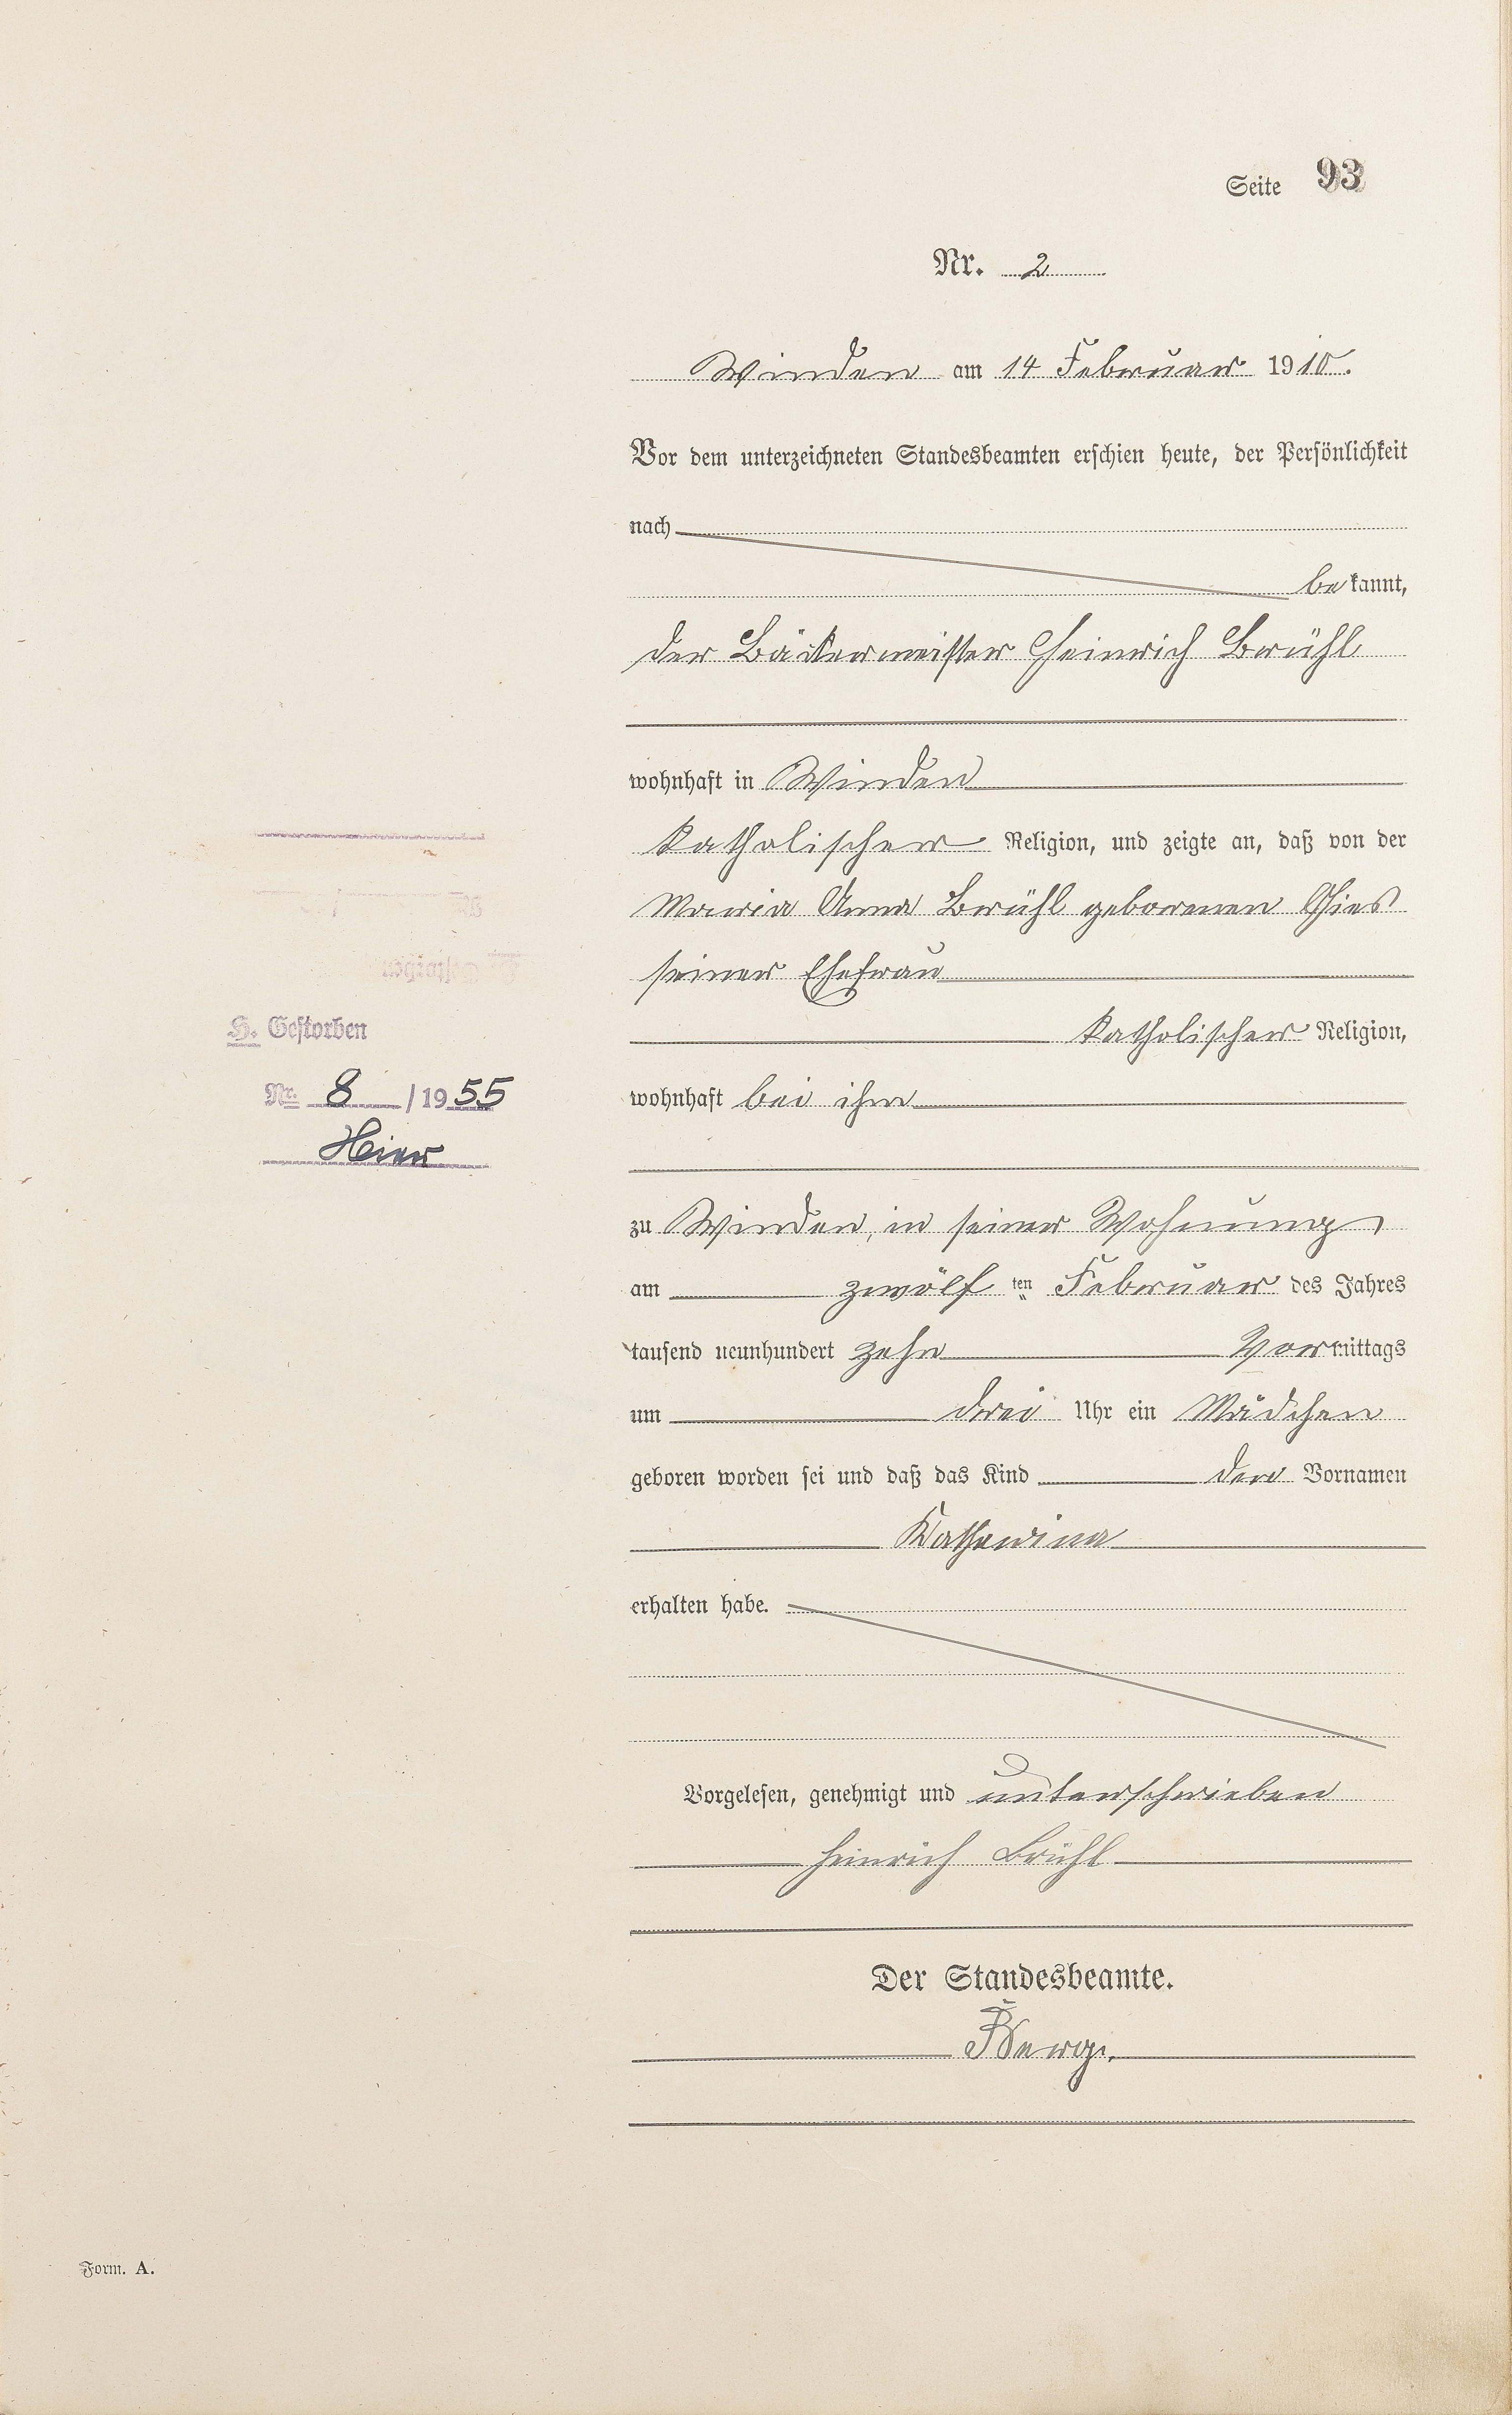 Seite 93
Nr. 2
Winden am 14 Februar 1910.
Vor dem unterzeichneten Standesbeamten erschien heute, der Persönlichkeit
nach
bekannt,
der Bäckermeister Heinrich Brühl
wohnhaft in Winden
katholischer Religion, und zeigte an, daß von der
Maria Anna Brühl geborenen Gies
seiner Ehefrau
katholischer Religion,
H. Gestorben
Nr. 8 / 1955
Hier
wohnhaft bei ihm
zu Winden, in seiner Wohnung
am zwölf ten Februar des Jahres
tausend neunhundert zehn Vormittags
um drei Uhr ein Mädchen
geboren worden sei und daß das Kind den Vornamen
Katharina
erhalten habe.
Vorgelesen, genehmigt und unterschrieben
Heinrich Brühl
Der Standesbeamte.
Form. A.